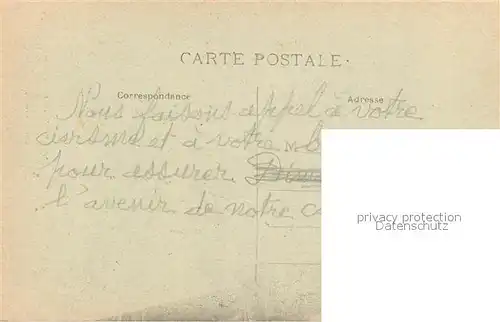 CARTE POSTALE.
Correspondance
Adresse
Nous faisons appel à votre
civisme et à votre
pour assurer
l'avenir de notre
privacy protection
Datenschutz